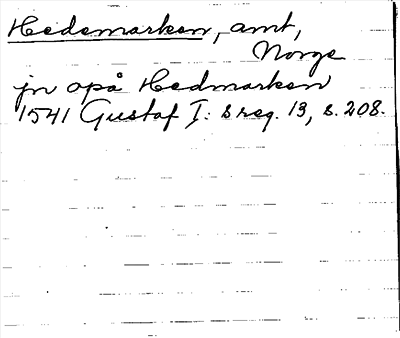 Hedemarken, amt,
Norge
jn opå Hedmarken
1541 Gustaf I: s reg. 13, s. 208.